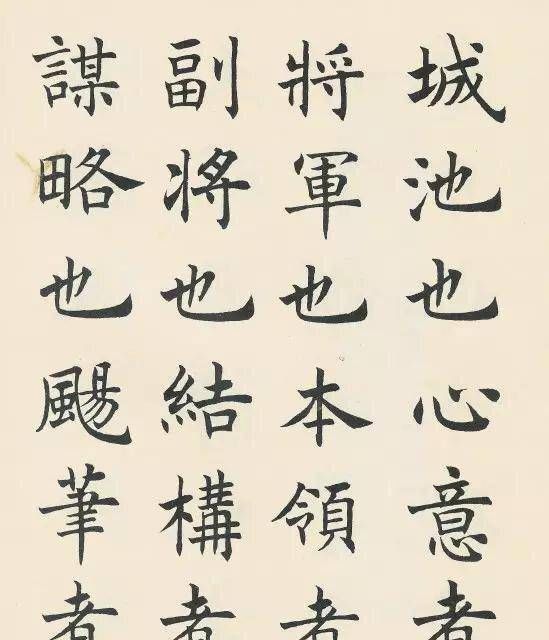 城池也心意者
將軍也本領者
副將也結構者
謀略也颺筆者